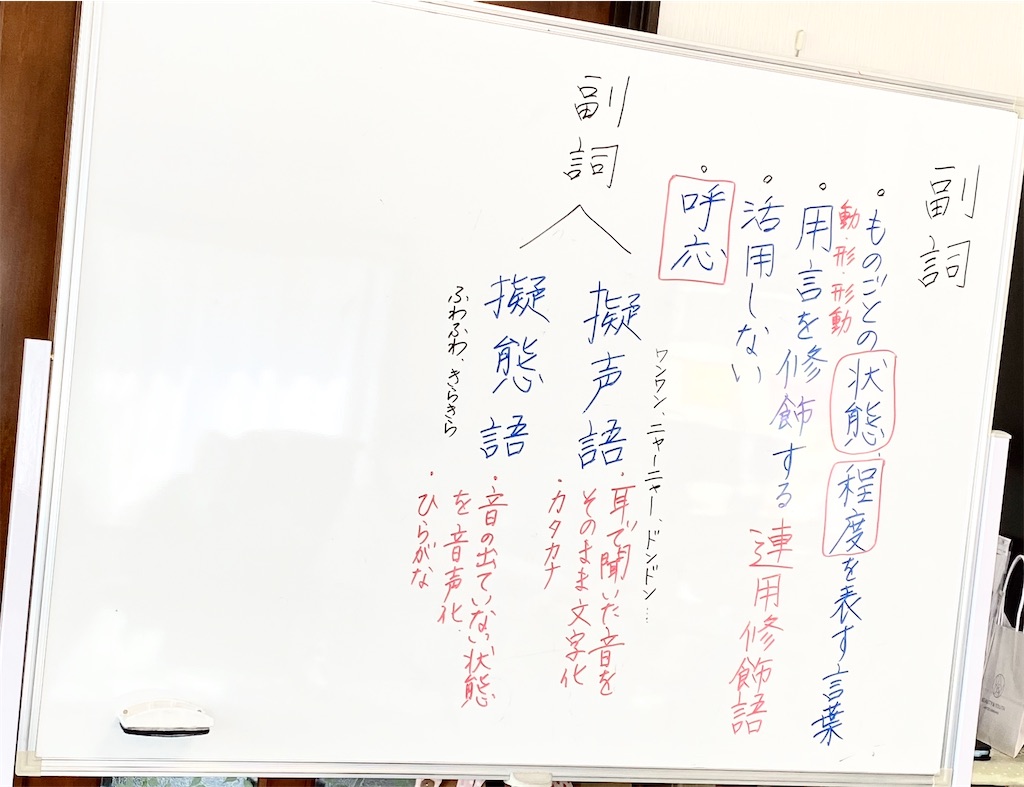 副詞
・ものごとの状態・程度を表す言葉
動・形・形動
・用言を修飾する連用修飾語
・活用しない
・呼応
副詞
ワンワン、ニャーニャー、ドンドン…
擬声語
・耳で聞いた音を
そのまま文字化
・カタカナ
擬態語
・音の出ていない状態
を音声化
・ひらがな
ふわふわ、きらきら